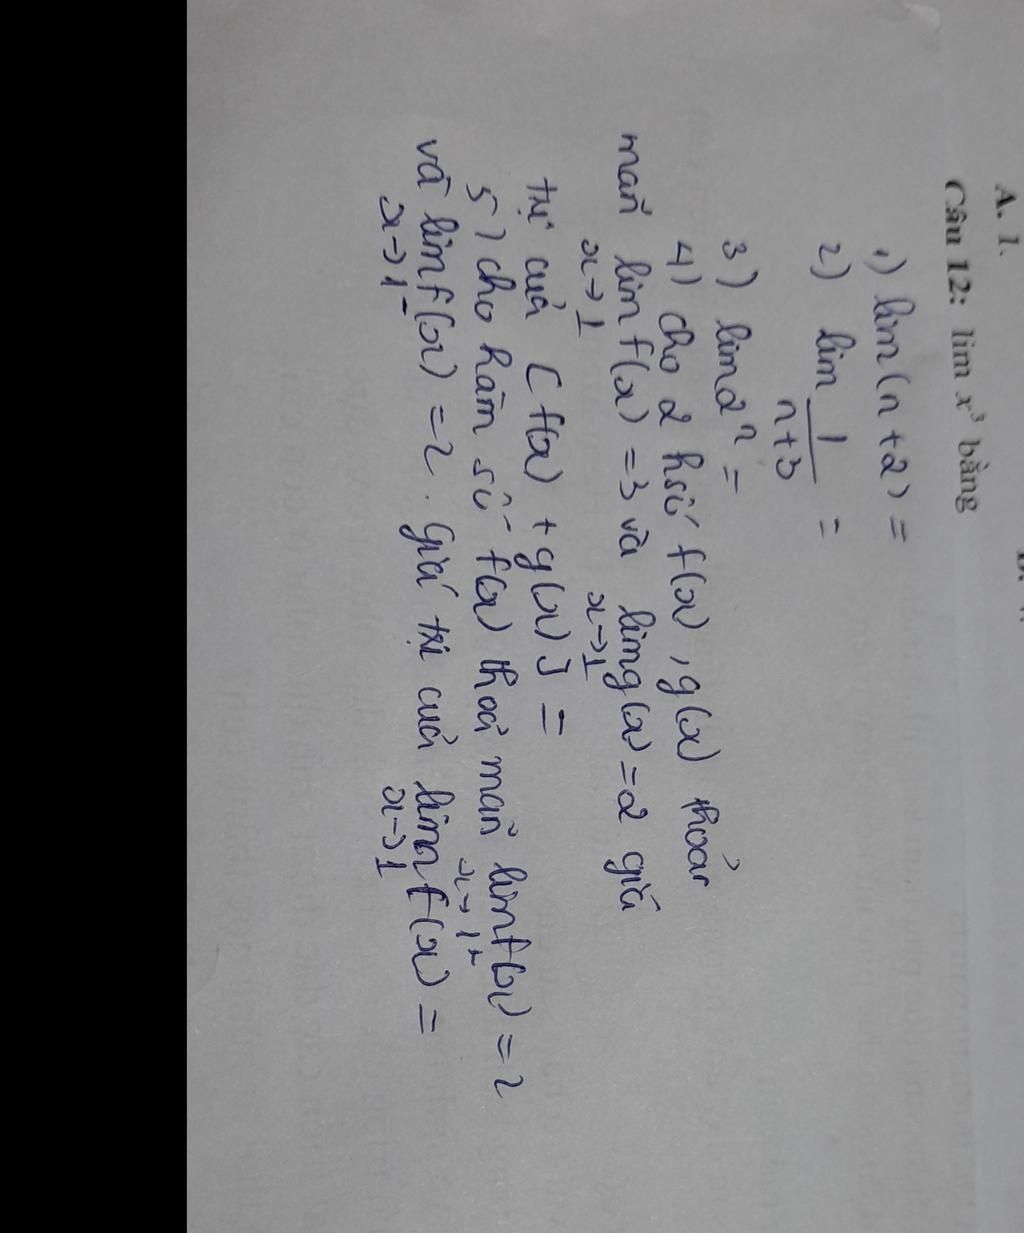 A. 1.
Câu 12: lim x³ bằng
1) lim(n+2) =
2) lim 1/(n+3) =
3) lim 2ⁿ =
4) cho 2 hsố f(x), g(x) thoả
mãn lim f(x) = 3 và lim g(x) = 2 giá
x→1 x→1
trị của [f(x) + g(x)] =
5) cho hàm số f(x) thoả mãn lim f(x) = 2
x→1⁺
và lim f(x) = 2. Giá trị của lim f(x) =
x→1⁻ x→1